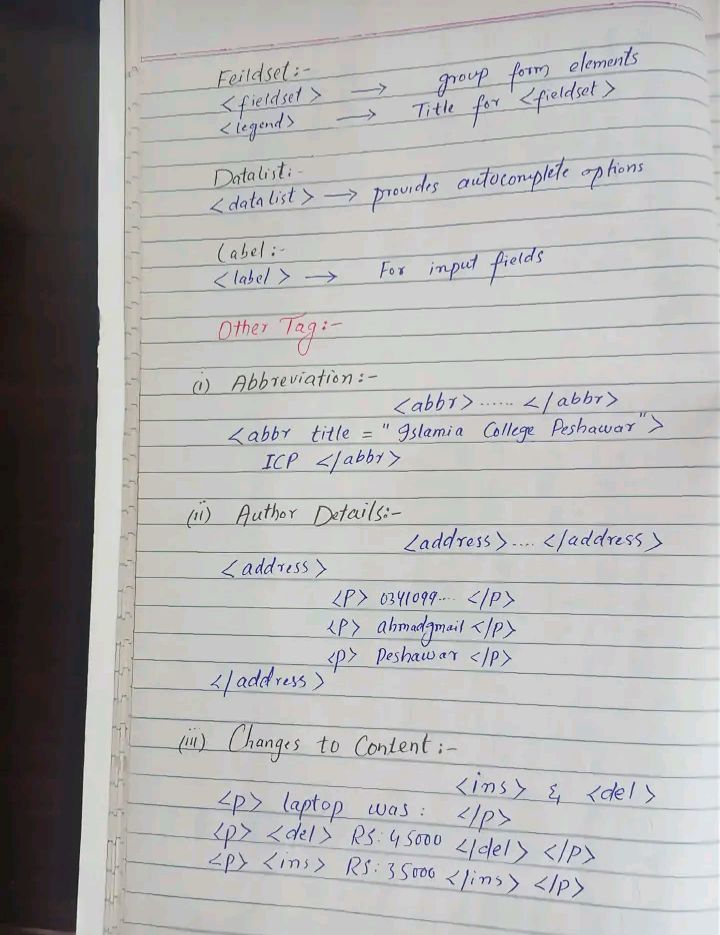 Feildset:-
<fieldset> → group form elements
<legend> → Title for <fieldset>
Datalist:-
<datalist> → provides autocomplete options
Label:-
<label> → For input fields
Other Tag:-
(i) Abbreviation:-
<abbr>...... </abbr>
<abbr title = "Islamia College Peshawar">
ICP </abbr>
(ii) Author Details:-
<address>.... </address>
<address>
<P> 0341099.... </P>
<P> ahmadgmail </P>
<P> Peshawar </P>
</address>
(iii) Changes to Content:-
<ins> & <del>
<P> laptop was: </P>
<P> <del> RS: 45000 </del> </P>
<P> <ins> RS: 35000 </ins> </P>